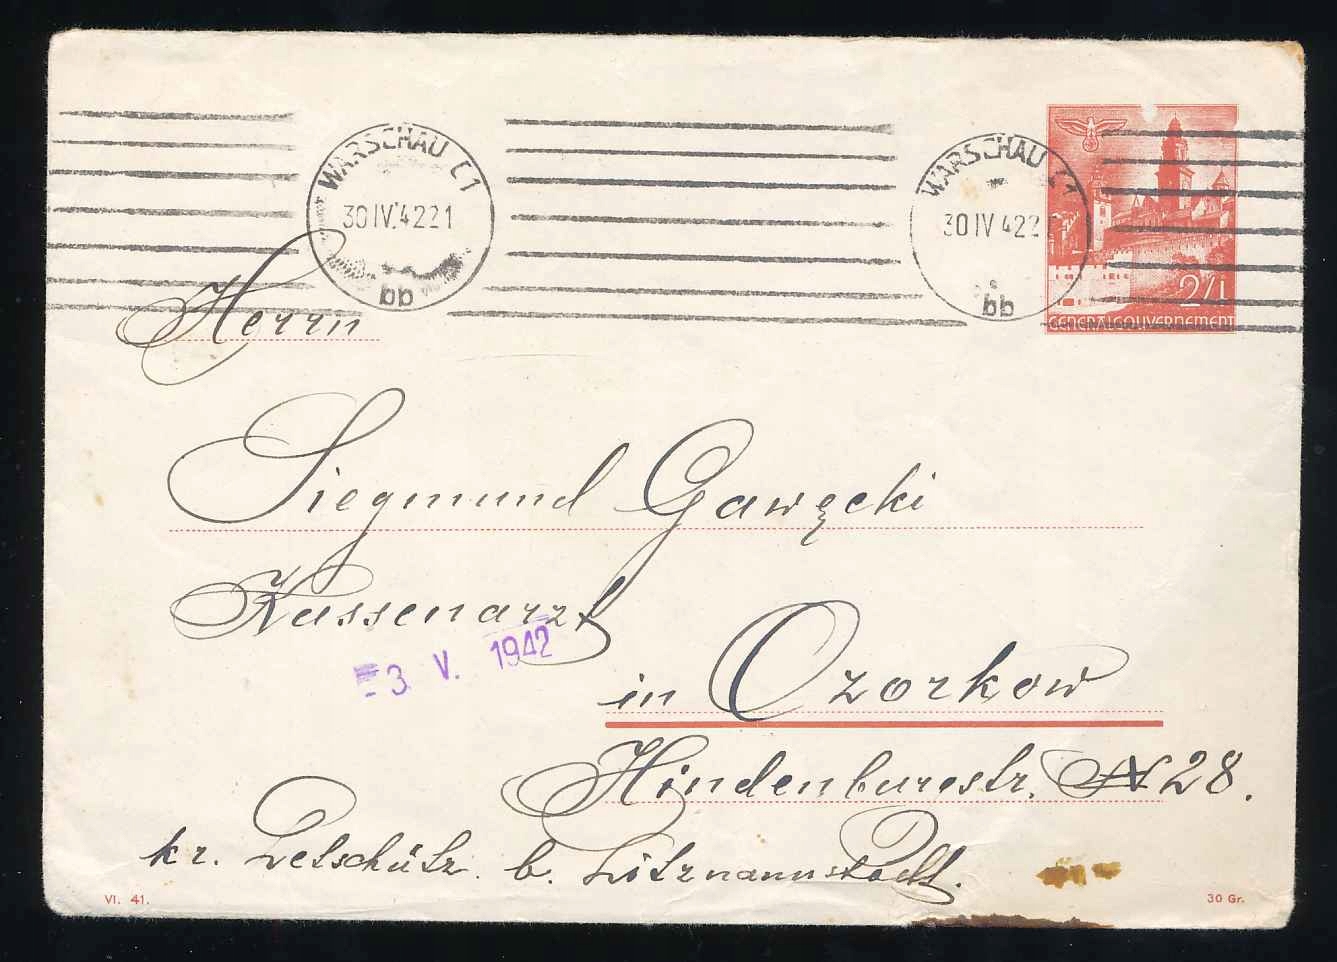 WARSCHAU C1
30 IV. 42 21
bb
WARSCHAU C1
30 IV 42 2
bb
24
GENERALGOUVERNEMENT
Herrn
Siegmund Gawęcki
Kassenarzt
3. V. 1942
in Ozorkow
Hindenburgstr. N 28.
kr. Lelschütz. b. Litzmannstadt.
VI. 41.
30 Gr.